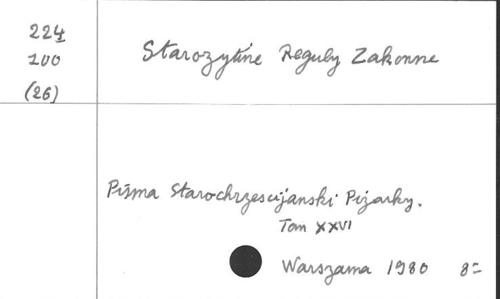 224
100
(26)
Starozytine Reguly Zakonne
Pisma Starochrzescijanski Pizarky.
Tom XXVI
Warszama 1980 8=